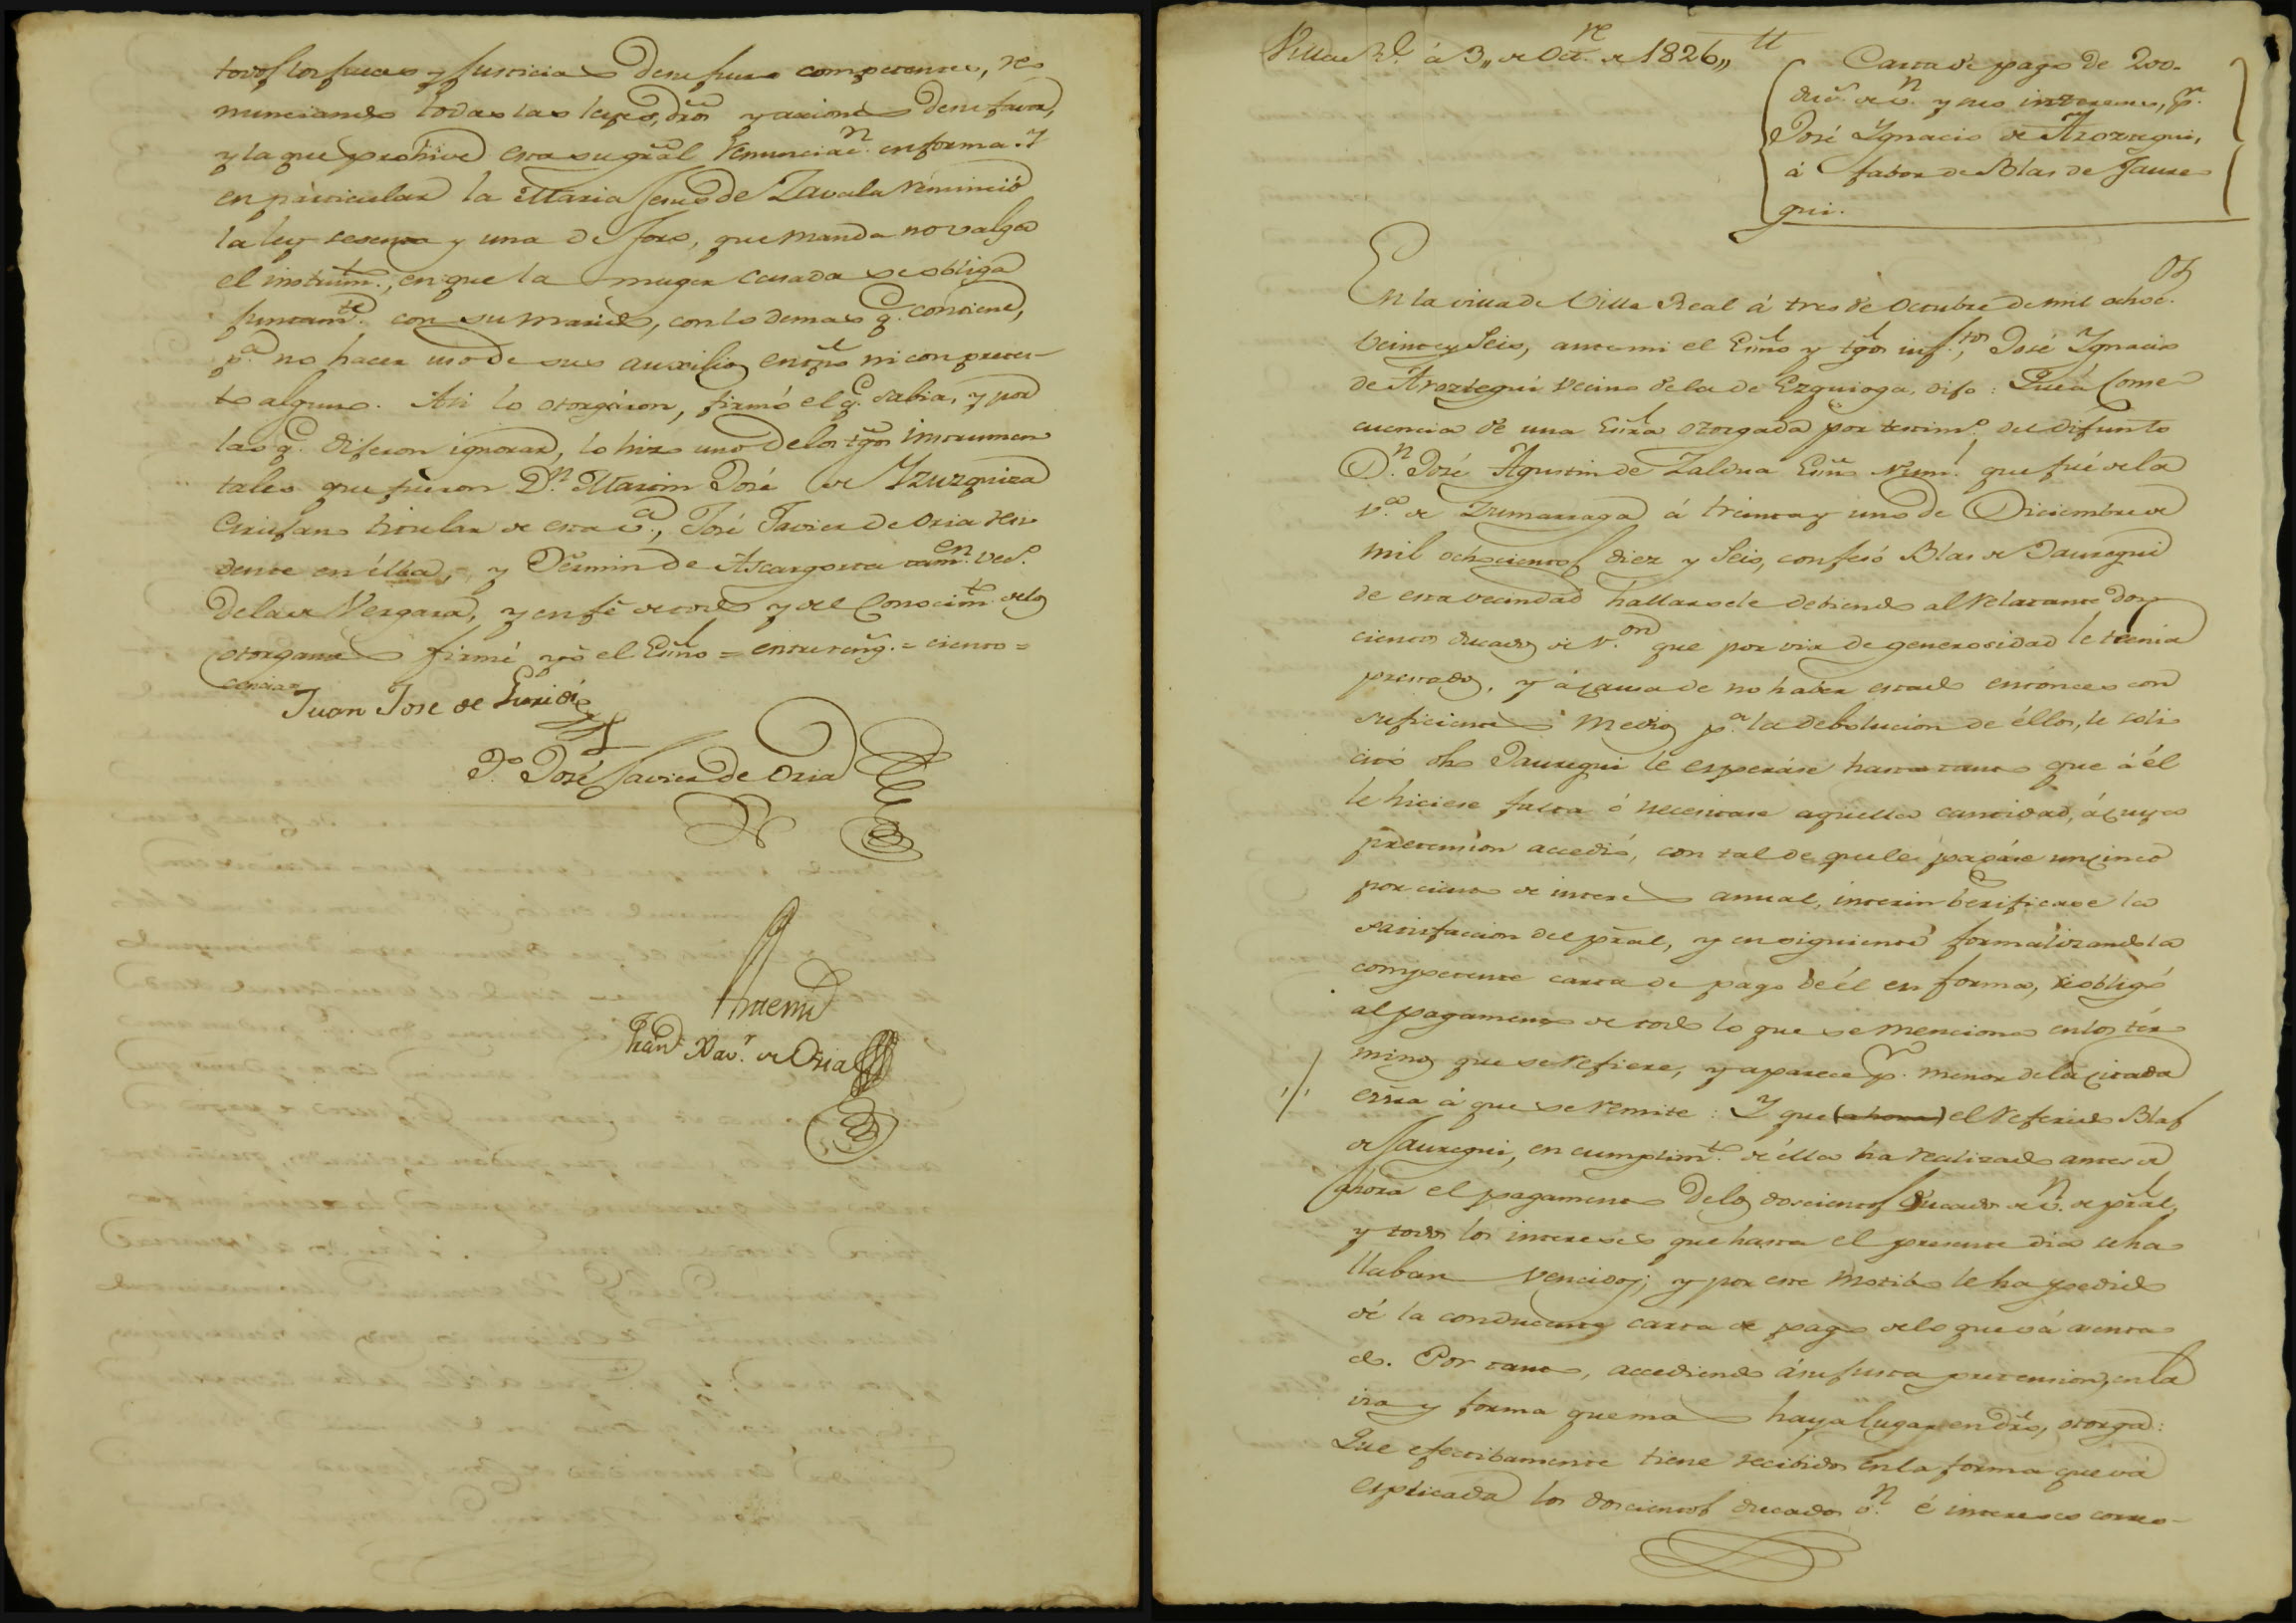 todos los jueces y justicias de su fuero competente, re-
nunciando todas las leyes, dros y acciones de su favor,
y la que prohive esta su gral renunciacn. en forma. Y
en particular la Maria Jesus de Zavala renunció
la ley sesenta y una de Toro, que manda no valga
el instrumto., en que la muger casada se obliga
juntamte. con su marido, con lo demas q. contiene,
pa. no hacer uso de sus auxilios en tpo ni con pretes-
to alguno. Asi lo otorgáron, firmó el q. sabia, y por
las q. dijeron ignorar, lo hizo uno de los tgos instrumen
tales que fueron Dn. Martin José de Yzuzquiza
Cirujano titular de esta va., José Javier de Oria resi
dente en élla, y Fermin de Ascargorta tamen. veco.
de la de Vergara, y en fé de todo y del conocimto. delos
otorgantes firmé yo el Esno = entrerreng. = ciento =
Juan Jose de
To. José Javier de Oria
Antemi
Xavr. de Oria
Villa Rl. á 3,, de Octre. de 1826,,
Carta de pago de 200.
ducs. de vn. y sus intereses, pr.
José Ygnacio de Aroztegui,
á fabor de Blas de Jaure
gui.
En la villa de Villa Real á tres de Octubre de mil ochocs.
veinte y seis, ante mi el Esno y tgos inftos., José Ygnacio
de Aroztegui vecino de la de Ezquioga, dijo: Que á conse
cuencia de una Esra otorgada por testimo. del difunto
Dn. José Agustin de Zaldua Esno Numl. que fué de la
va. de Zumarraga á treinta y uno de Diciembre de
mil ochocientos diez y seis, confesó Blas de Jauregui
de esta vecindad hallarsele debiendo al relatante dos
cientos ducados de von. que por via de generosidad le tenia
prestados, y á causa de no haber estado entónces con
suficientes medios pa. la debolucion de éllos, le soli
citó dho Jauregui le esperáse hasta tanto que á él
le hiciese falta ó necesitase aquella cantidad, á cuya
pretension accedió, con tal de que le pagáse un cinco
por ciento de interes anual, interin berificase la
satisfaccion del pral, y en siguiente formalizando la
competente carta de pago de él en forma, se obligó
al pagamento de todo lo que se menciona en los tér
minos que se refiere, y aparece pr. menor de la citada
esra á que se remite: Y que (ahora) el referido Blas
de Jauregui, en cumplimto. de élla ha realizado antes de
ahora el pagamento de los doscientos ducados de vn. de pral,
y todos los intereses que hasta el presente dia se ha
llaban vencidos; y por este motibo le ha pedido
dé la conducente carta de pago de lo que vá asenta
do. Por tanto, accediendo á su justa pretension, en la
via y forma que mas haya lugar en dro, otorga:
Que efectibamente tiene recibidos en la forma que vá
esplicada los doscientos ducados vn. é intereses corres-